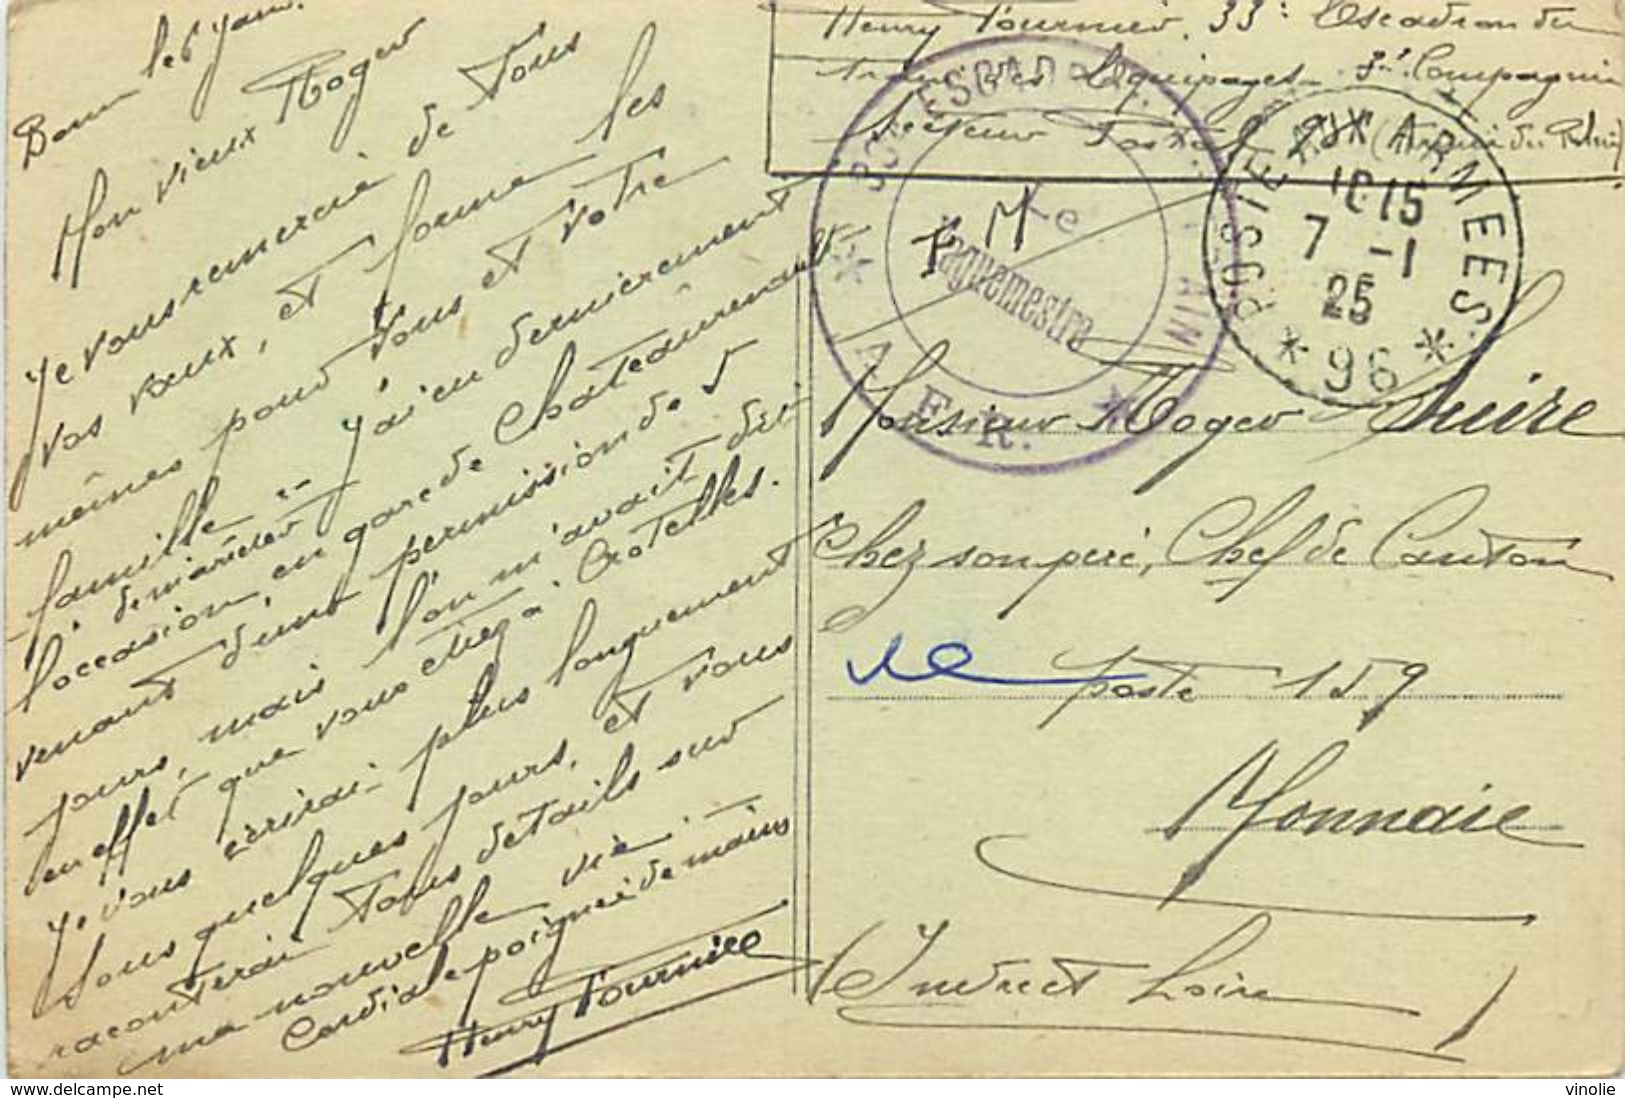 Bonn le 6 Janv.
Mon vieux Roger
Je vous remercie de tous
vos vœux, et forme les
mêmes pour vous et votre
famille. J'ai eu dernièrement
l'occasion, en gare de Chateaurenault
venant d'une permission de 5
jours, mais l'on m'avait dit
en effet que vous étiez à Crotelles.
Je vous écrirai plus longuement
sous quelques jours, et vous
raconterai tous détails sur
ma nouvelle vie.
Cordiale poignée de mains
Henry Fournier
Henry Fournier, 33e Escadron du
train des Equipages 3e Compagnie
Secteur Postal 96 (Armée du Rhin)
33e ESCADRON TRAIN
* A.F.R. *
Le
Vaguemestre
F M
POSTE AUX ARMEES
10 15
7 -1
25
* 96 *
Monsieur Roger Suire
Chez son père, Chef de Canton
poste 159
Monnaie
(Indre et Loire)
www.delcampe.net
vinolie